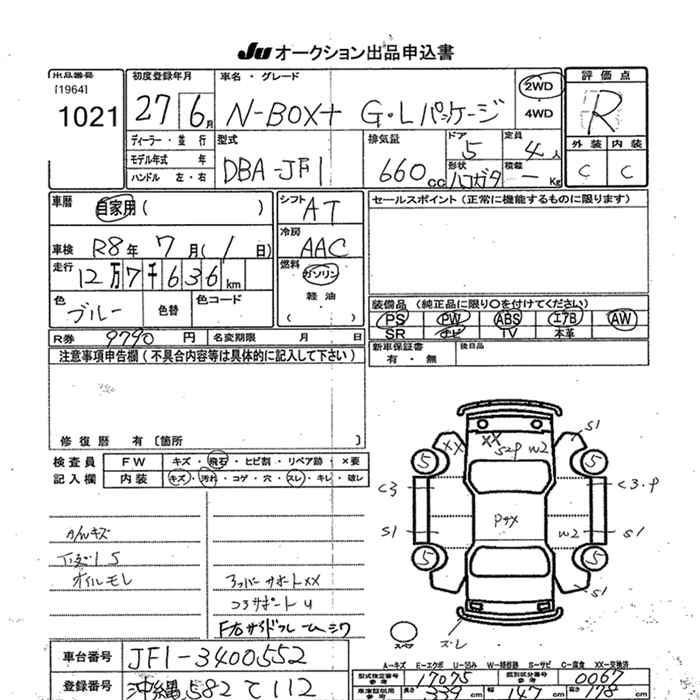 Ju オークション出品申込書
出品番号
[1964]
1021
初度登録年月
27 6月
車名・グレード
N-BOX+ G・Lパッケージ
2WD
4WD
評価点
R
外装 内装
C C
ディーラー・並行
モデル年式 年
ハンドル 左・右
型式
DBA-JF1
排気量
660cc
ドア
5
定員
4人
形状
ハコガタ
積載
- Kg
車歴
自家用( )
車検 R8年 7月( 1日)
走行
12万7千636km
色
ブルー
色替
色コード
シフト
AT
冷房
AAC
燃料
ガソリン
軽油
( )
セールスポイント(正常に機能するものに限ります)
装備品 (純正品に限り○を付けてください)
PS PW ABS エアB AW
SR ナビ TV 本革
新車保証書
有・無
後日品
R券 9790円 名変期限 月 日
注意事項申告欄(不具合内容等は具体的に記入して下さい)
修復歴 有〔箇所 〕
検査員
記入欄
FW キズ・飛石・ヒビ割・リペア跡・×要
内装 キズ・汚れ・コゲ・穴・スレ・キレ・破レ
オイルモレ
コアサポートU
XX XX S2P W2 S1
5 5
C3 C3.P
S1 W2 S1
5 5
S1
スレ
スペア
車台番号 JF1-3400552
登録番号 沖縄582 て 112
A-キズ E-エクボ U-凹み W-補修跡 S-サビ C-腐食 XX-交換済
型式指定番号
参考
17075
類別区分番号
参考
0067
339 147 178